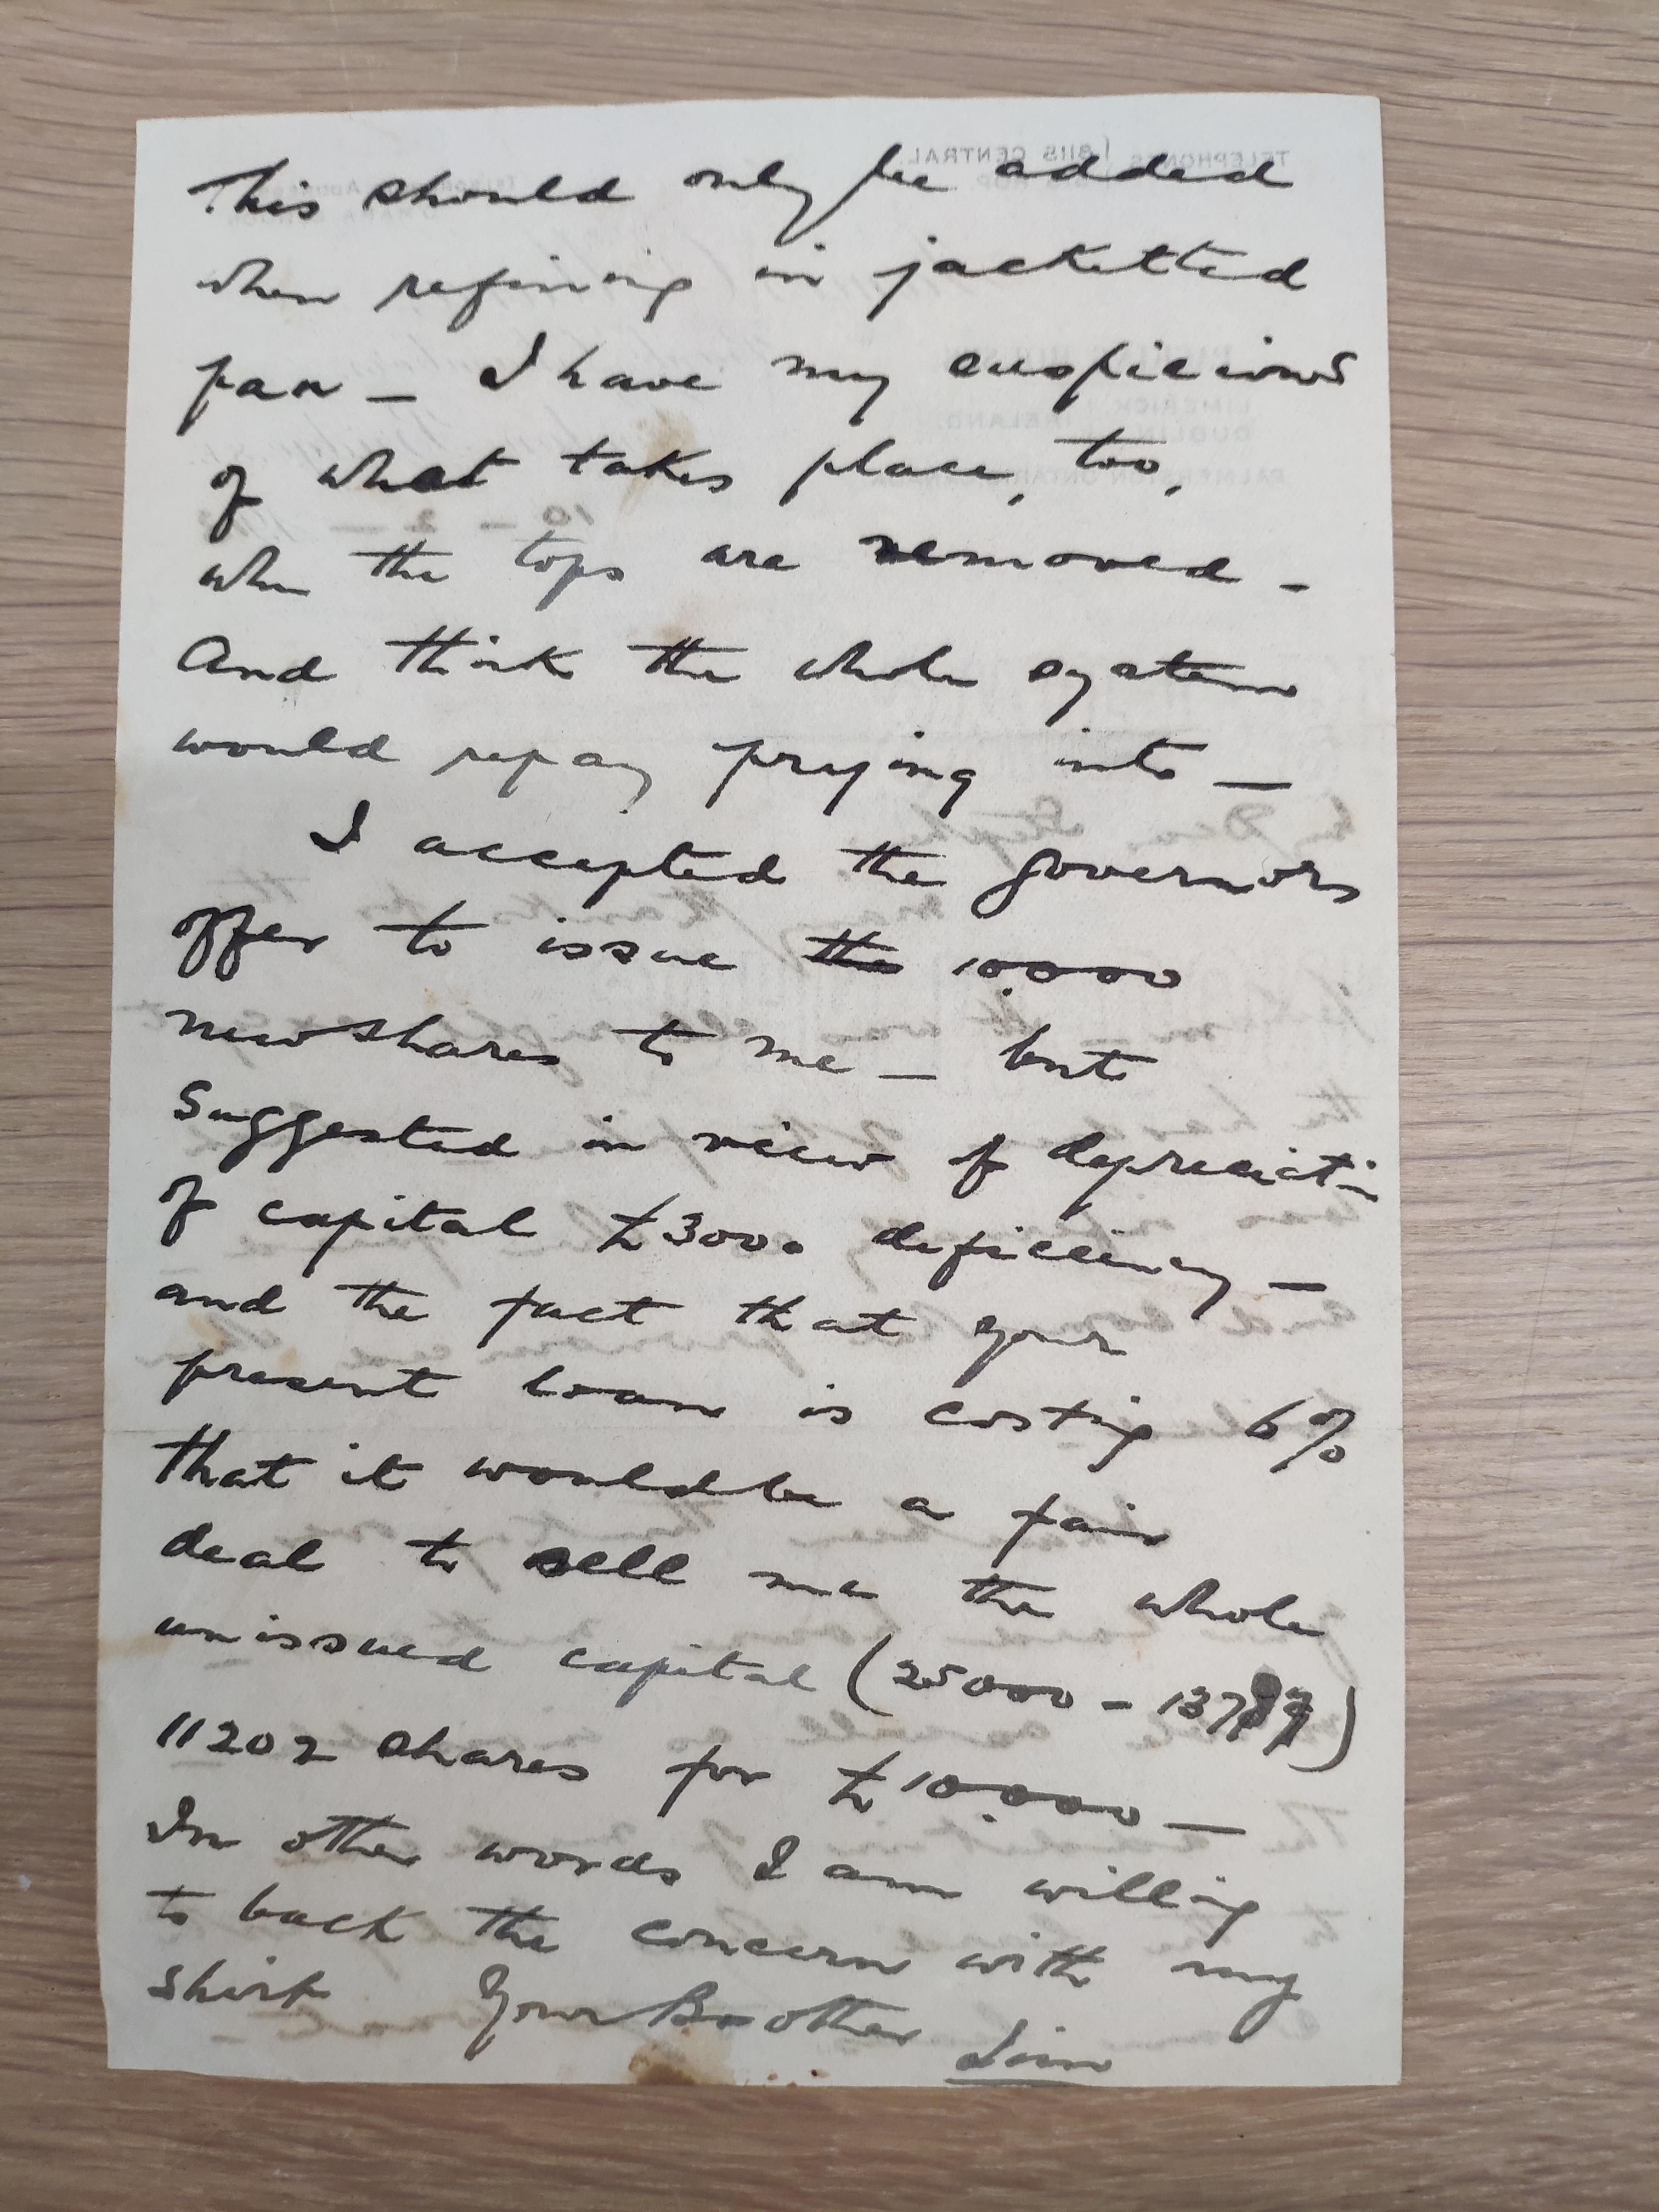 This should only be added
when refining in jacketted
pan — I have my suspicions
of what takes place, too,
when the tops are removed —
And think the whole system
would repay prying into —
I accepted the Governors
offer to issue the 10.000
new shares to me — but
Suggested in view of depreciation
of capital £3000 deficiency —
and the fact that your
present loan is costing 6%
that it would be a fair
deal to sell me the whole
unissued capital (25000 — 137)
11202 shares for £10.000 —
In other words I am willing
to back the concern with my
shirt Your Brother